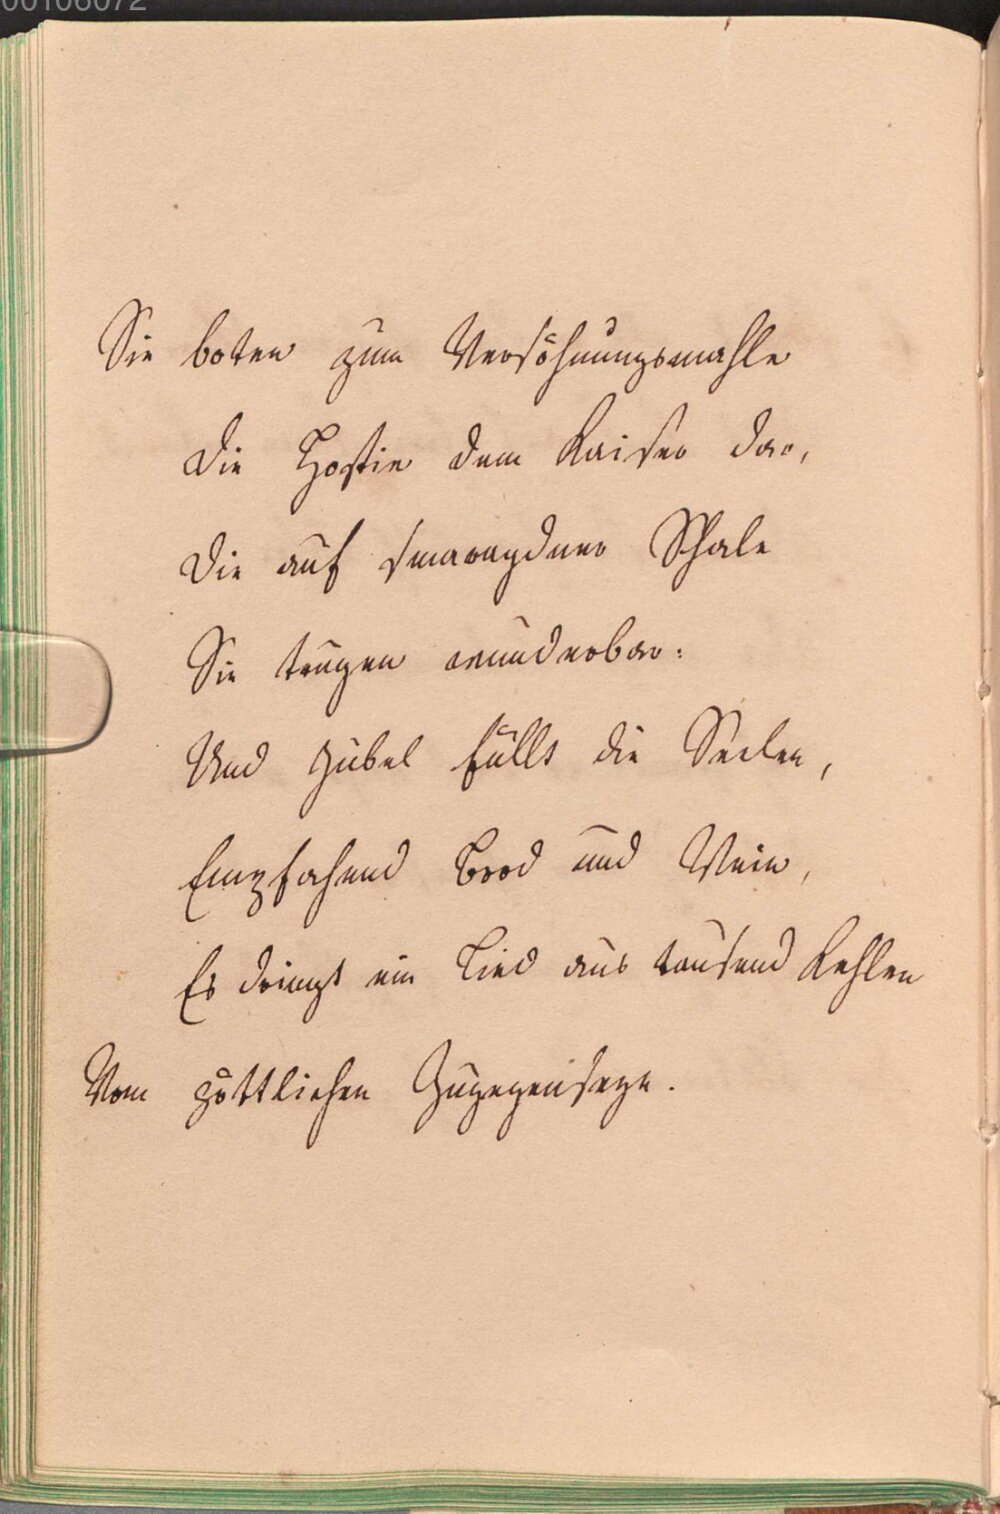 00106072
Sie boten zum Versöhnungsmahle
Die Hostie dem Kaiser dar,
Die auf smaragdner Schale
Sie trugen wunderbar:
Und Jubel füllt die Seelen,
Empfahend Brod und Wein,
Es dringt ein Lied aus tausend Kehlen
Vom göttlichen Zugegenseyn.